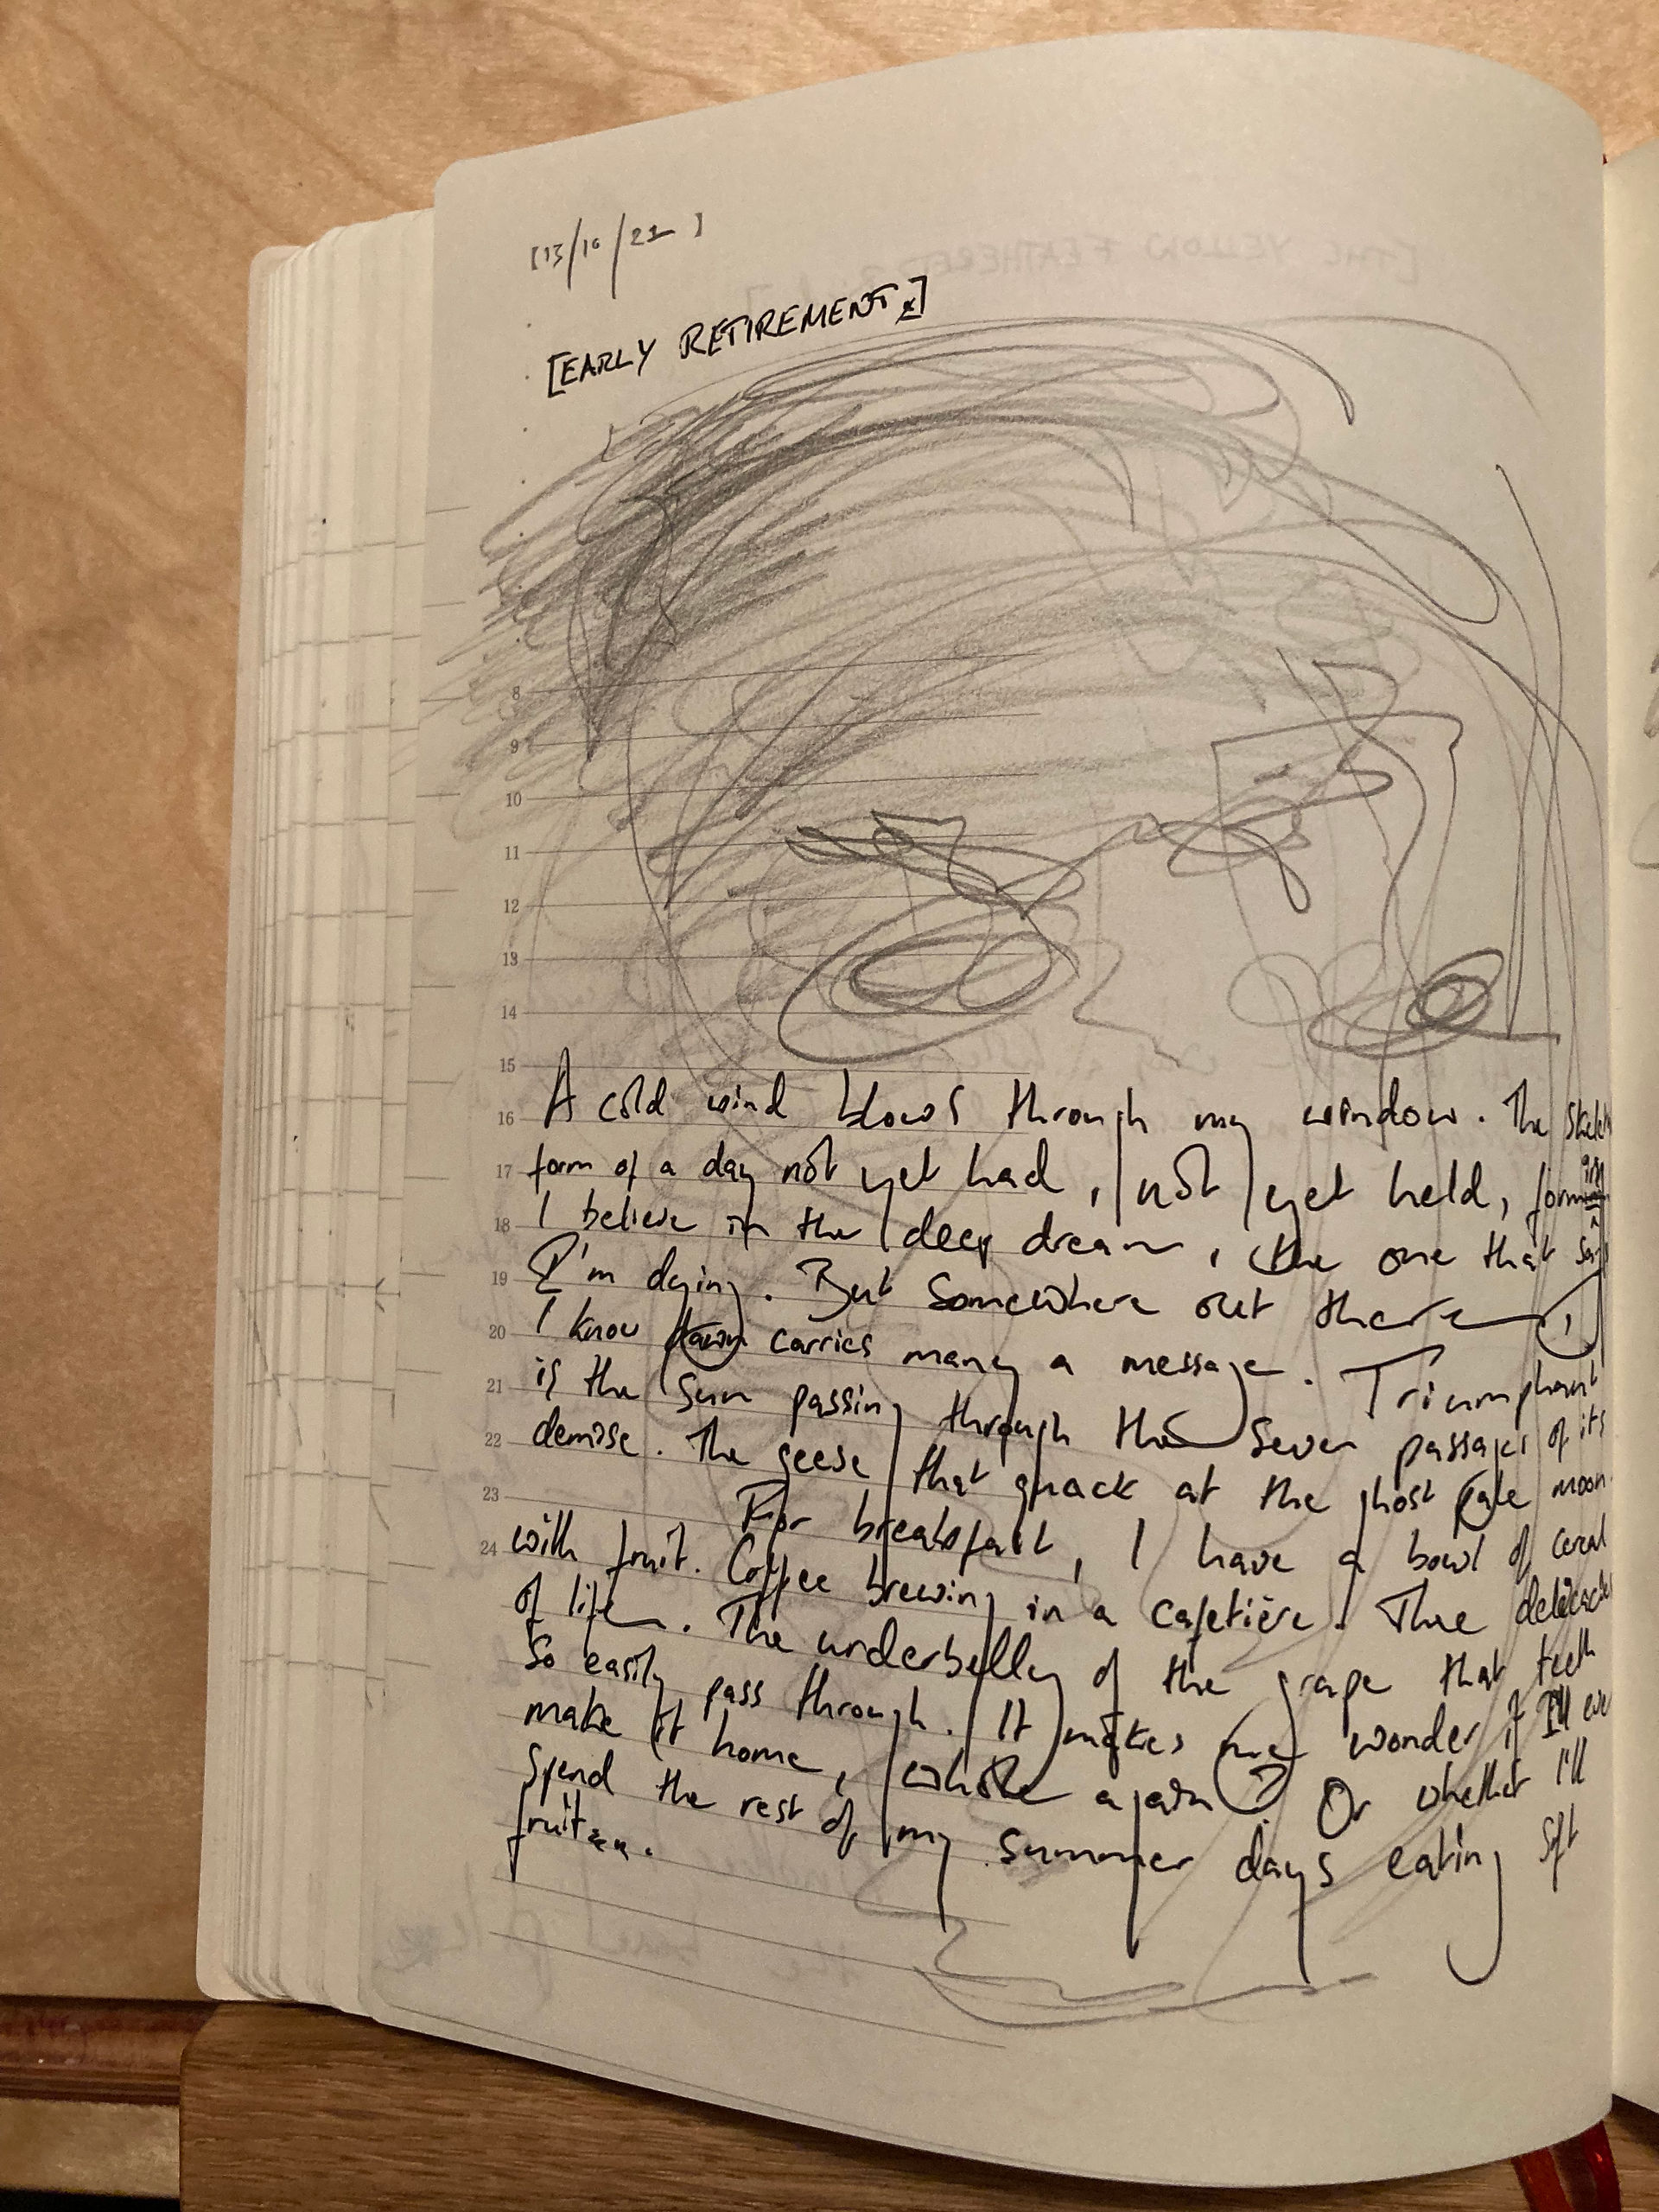 [13/10/21]
[EARLY RETIREMENT]
8
9
10
11
12
13
14
15
16 A cold wind blows through my window. The
17 form of a day not yet had, not yet held, forming
18 I believe in the deep dream, the one that
19 I'm dying. But Somewhere out there,
20 I know dawn carries many a message. Triumphant
21 is the Sun passing through the Seven passages of its
22 demise. The geese that quack at the ghost pale moon.
23 For breakfast, I have a bowl of cereal
24 with fruit. Coffee brewing in a cafetière. The delicacies
of life. The underbelly of the grape that teeth
So easily pass through. It makes me wonder if I'll ever
make it home, whole again? Or whether I'll
Spend the rest of my Summer days eating soft
fruit.